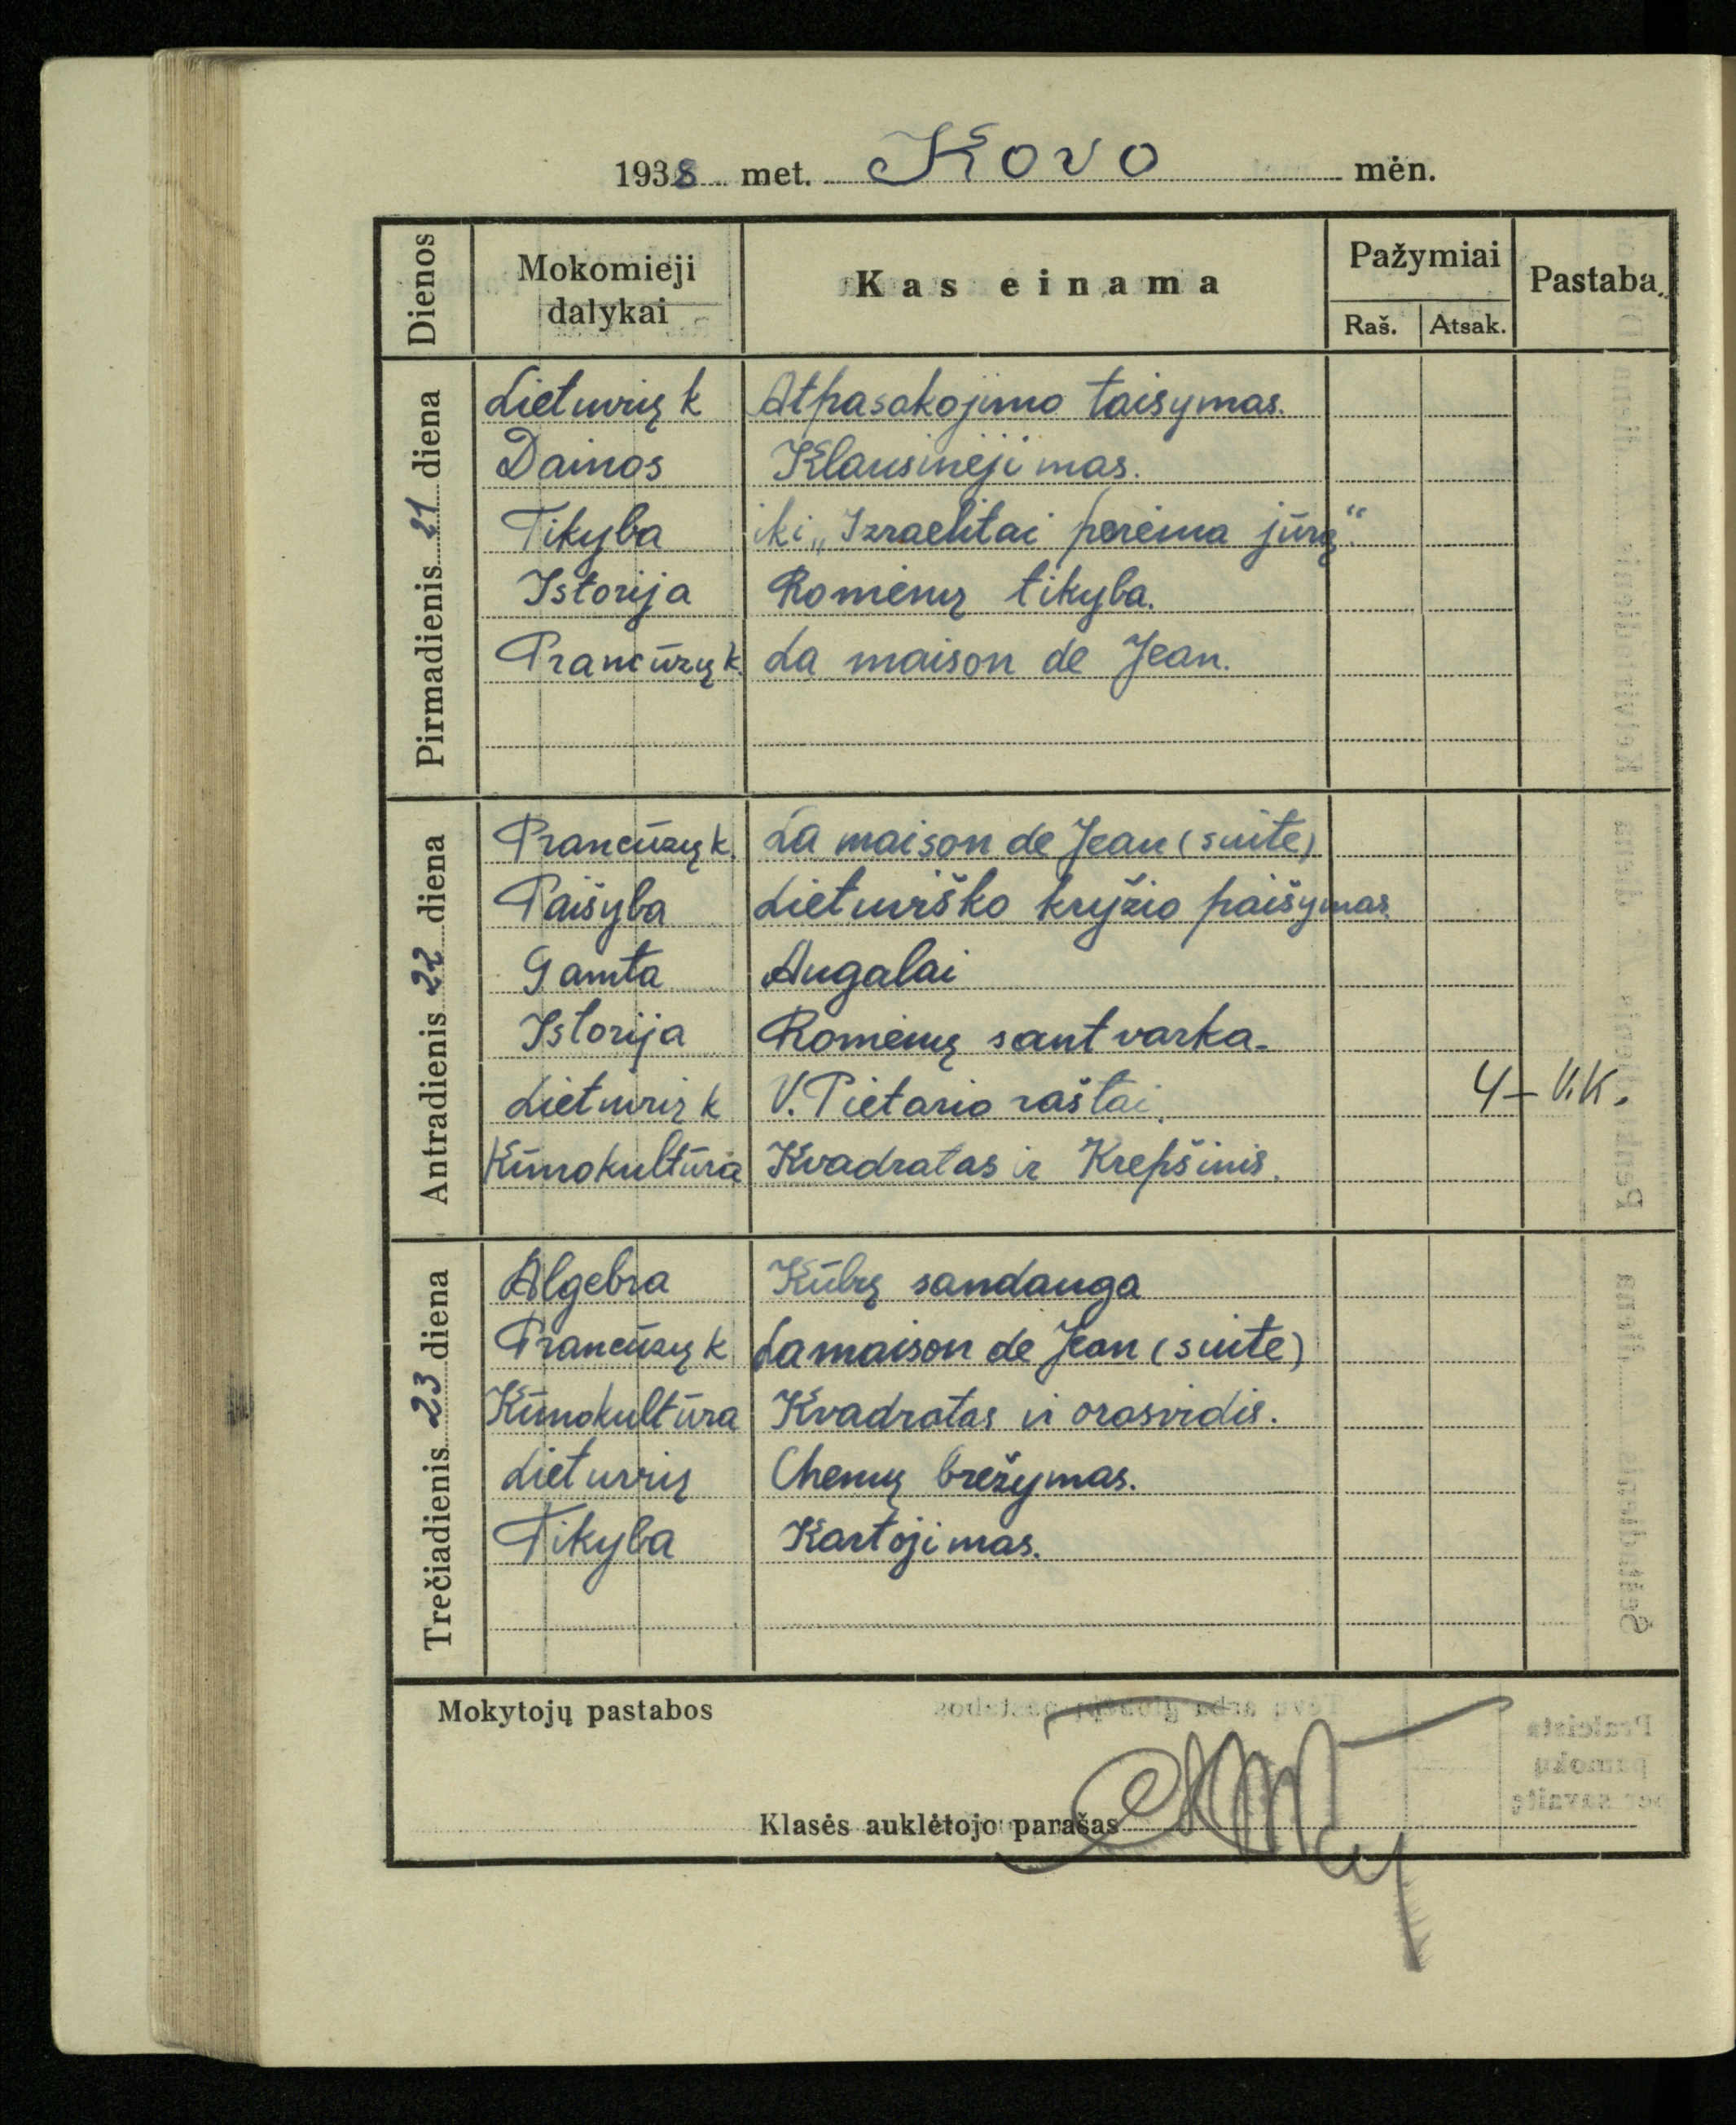 1938 met. Kovo mėn.
Dienos Mokomieji dalykai Kas einama Pažymiai Pastaba
Raš. Atsak.
Pirmadienis 21 diena
Lietuvių k Atpasakojimo taisymas.
Dainos Klausinėjimas.
Tikyba iki „Izraelitai pereina jūrą“
Istorija Romėnų tikyba.
Prancūzų k. La maison de Jean.
Antradienis 22 diena
Prancūzų k. La maison de Jean (suite)
Paišyba Lietuviško kryžio paišymas
Gamta Augalai
Istorija Romėnų santvarka.
Lietuvių k V. Pietario raštai. 4– V.K.
Kūnokultūra Kvadratas ir Krepšinis.
Trečiadienis 23 diena
Algebra Kūbų sandauga
Prancūzų k La maison de Jean (suite)
Kūnokultūra Kvadratas ir orasvidis.
Lietuvių Chemų brėžymas.
Tikyba Kartojimas.
Mokytojų pastabos
Klasės auklėtojo parašas